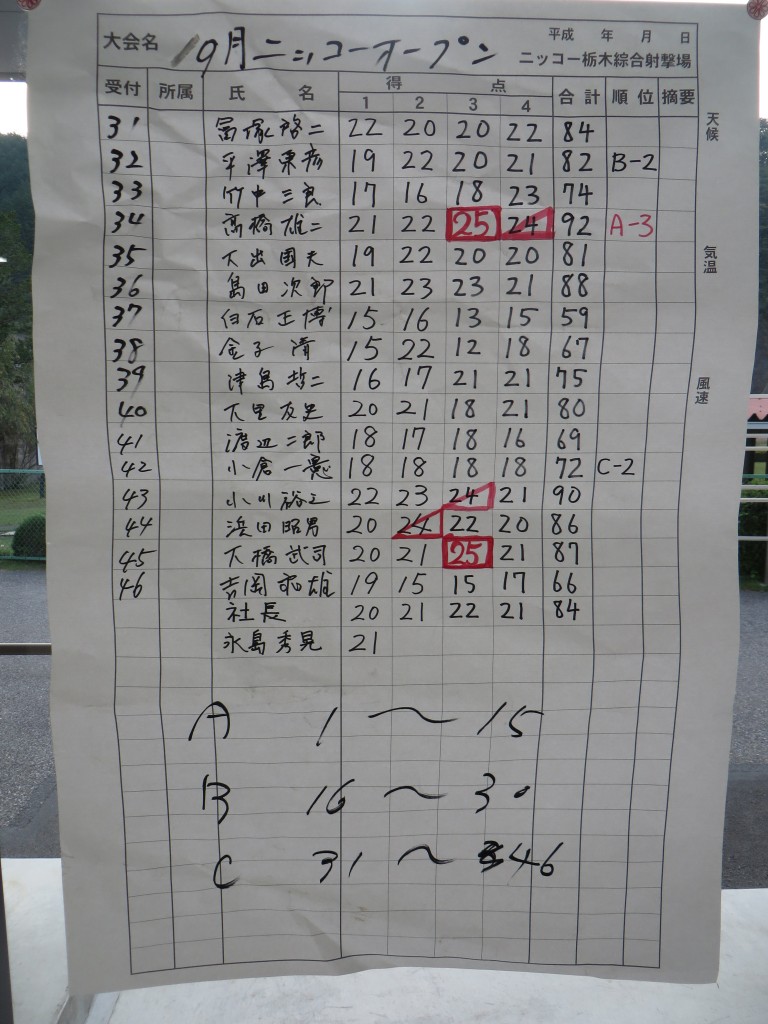 平成 年 月 日
大会名 9月ニッコーオープン ニッコー栃木綜合射撃場
受付 所属 氏 名 得 点 合計 順位 摘要
1 2 3 4
天候
31 冨塚啓二 22 20 20 22 84
32 平澤東彦 19 22 20 21 82 B-2
33 竹中三良 17 16 18 23 74
34 高橋雄二 21 22 25 24 92 A-3
気温
35 大出国夫 19 22 20 20 81
36 島田次郎 21 23 23 21 88
37 白石正博 15 16 13 15 59
38 金子清 15 22 12 18 67
39 津島哲二 16 17 21 21 75
風速
40 大里友史 20 21 18 21 80
41 渡辺二郎 18 17 18 16 69
42 小倉一憲 18 18 18 18 72 C-2
43 小川裕之 22 23 24 21 90
44 浜田昭男 20 24 22 20 86
45 大橋武司 20 21 25 21 87
46 吉岡和雄 19 15 15 17 66
社長 20 21 22 21 84
永島秀晃 21
A 1 〜 15
B 16 〜 30
C 31 〜 46